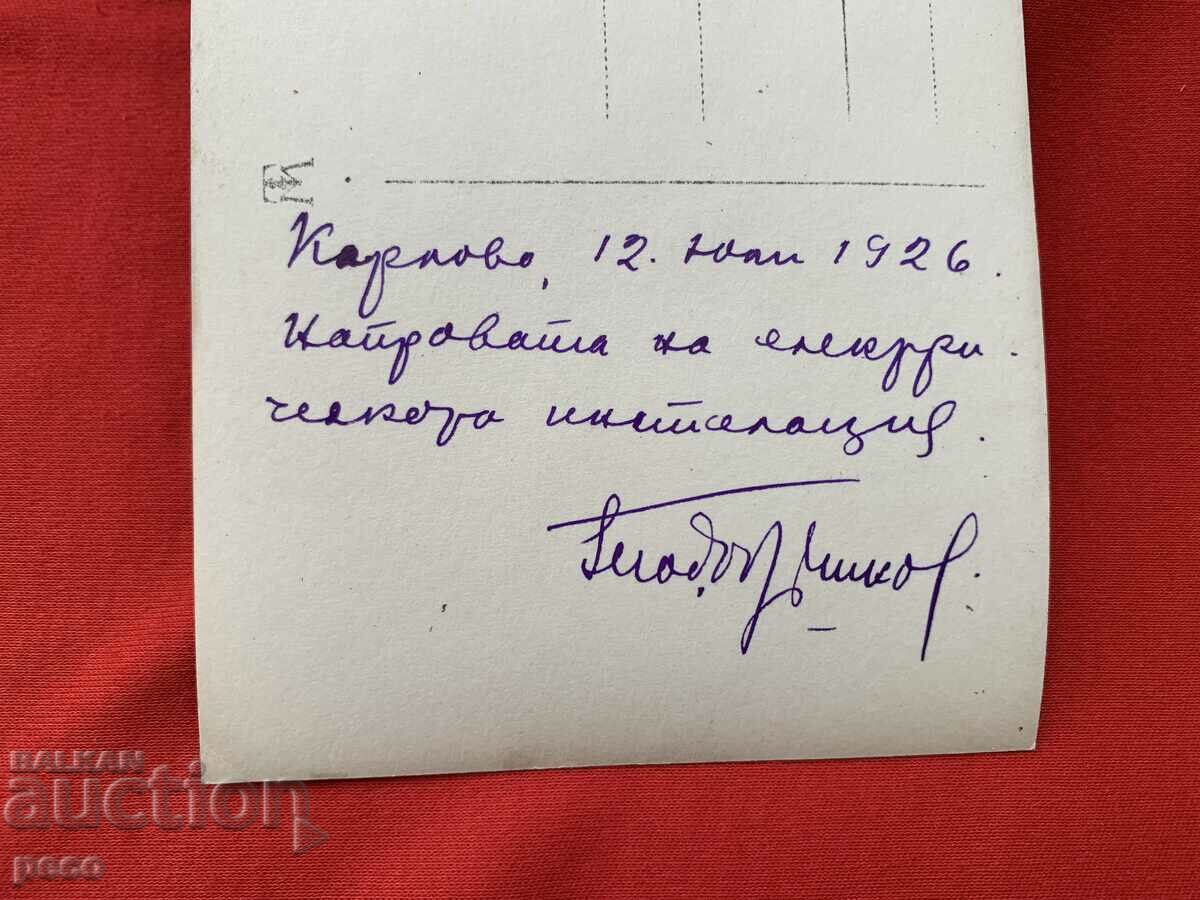 Карлово, 12. юли 1926.
Направата на електри-
ческата инсталация.
BALKAN
auction
peco